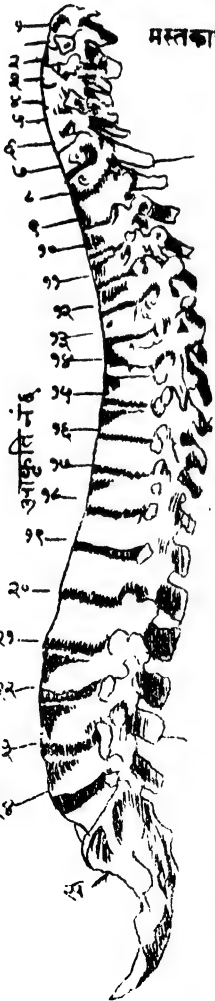 मस्तका
१
२
३
४
५
६
७
८
९
१०
११
१२
१३
१४
१५
१६
१७
१८
१९
२०
२१
२२
३
२४
आकृति नं ६